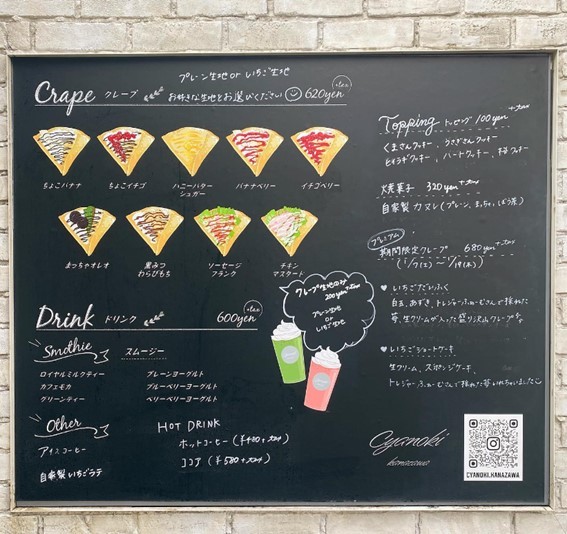 プレーン生地 or いちご生地
Crape クレープ お好きな生地をお選びください 620yen +tax
ちょこバナナ ちょこイチゴ ハニーバターシュガー バナナベリー イチゴベリー
まっちゃオレオ 黒みつわらびもち ソーセージフランク チキンマスタード
クレープ生地のみ
200yen +tax
プレーン生地
or
いちご生地
Drink ドリンク 600yen +tax
Smothie スムージー
ロイヤルミルクティー プレーンヨーグルト
カフェモカ ブルーベリーヨーグルト
グリーンティー ベリーベリーヨーグルト
Other HOT DRINK
アイスコーヒー ホットコーヒー (¥480+tax)
自家製いちごラテ ココア (¥580+tax)
Topping トッピング 100yen +tax
くまさんクッキー、うさぎさんクッキー
ハートクッキー、桜クッキー
焼菓子 320yen +tax
自家製カヌレ(プレーン、まっちゃ、ほうじ茶)
プレミアム
期間限定クレープ 680yen +tax
♥ いちごだいふく
白玉、あずき、
苺、生クリームが入った盛り沢山クレープ
♥ いちごショートケーキ
生クリーム、スポンジケーキ、
Cyanoki
kanazawa
CYANOKI.KANAZAWA